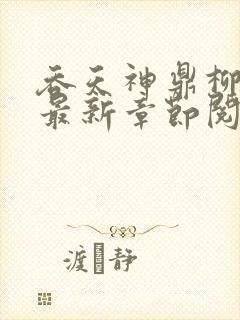 吞天神鼎柳
最新章节阅
渡静